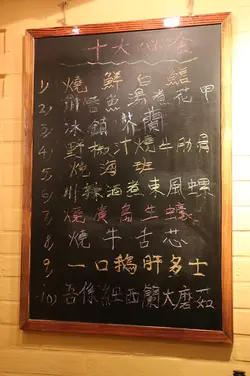 十大必食
1) 燒鮮白鱔
2) 併香魚湯煮花甲
3) 冰鎮芥蘭
4) 野椒汁燒牛肋肩
5) 燒海班
6) 川辣酒煮東風螺
7) 燒廣島生蠔
8) 燒牛舌芯
9) 一口鵝肝多士
10) 吾係紐西蘭大磨茹